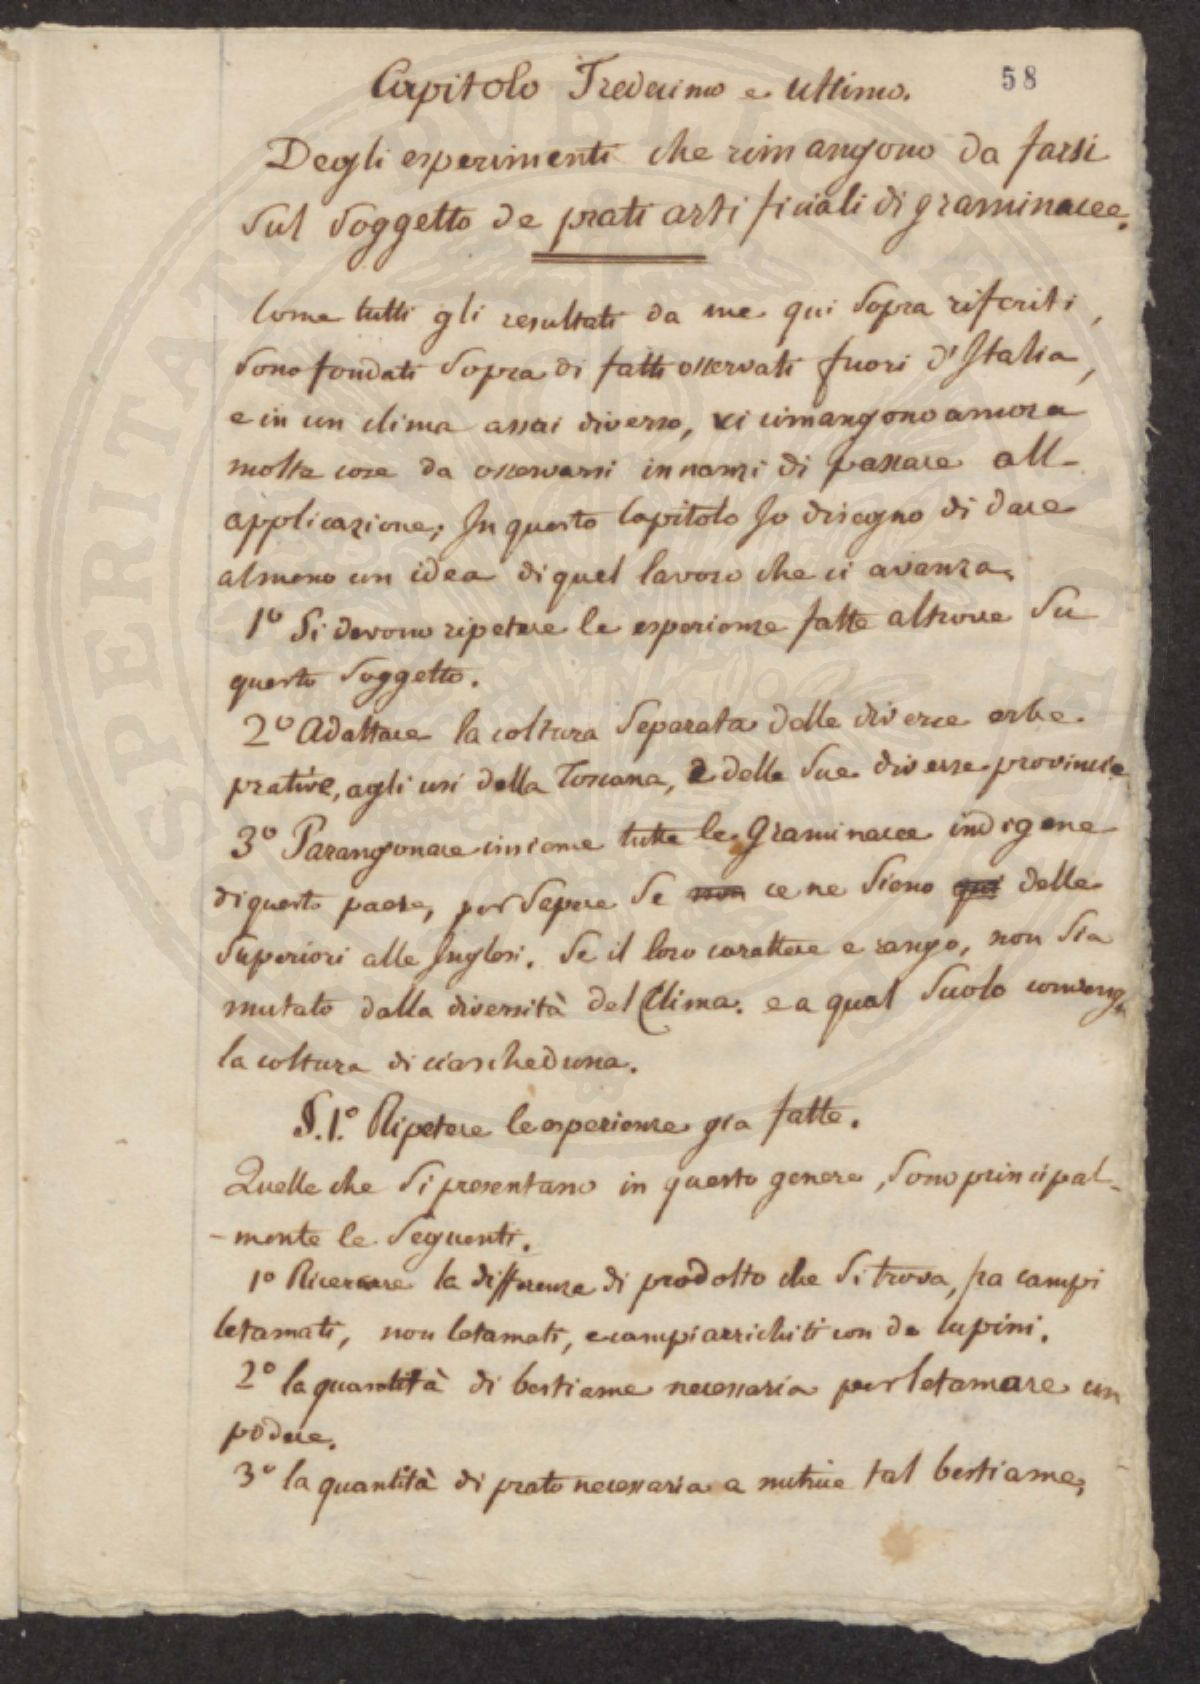 58
Capitolo Tredecimo e ultimo.
Degli esperimenti che rimangono da farsi
sul soggetto de prati artificiali di graminacee.
Come tutti gli resultati da me qui sopra riferiti,
sono fondati sopra di fatti osservati fuori d'Italia,
e in un clima assai diverso, vi rimangono ancora
molte cose da osservarsi innanzi di passare all
applicazione; In questo Capitolo Io disegno di dare
almeno un idea di quel lavoro che ci avanza.
1º Si devono ripetere le esperienze fatte altrove su
questo soggetto.
2º Adattare la coltura separata delle diverse erbe
prative, agli usi della Toscana, e delle sue diverse provincie
3º Parangonare insieme tutte le Graminacee indigene
di questo paese, per sapere se non ce ne sieno qui delle
superiori alle Inglesi. Se il loro carattere e rango, non sia
mutato dalla diversità del Clima. e a qual suolo conveng
la coltura di ciascheduna.
§.1.º Ripetere le esperienze gia fatte.
Quelle che si presentano in questo genere, sono principal-
-mente le seguenti.
1º Ricercare la differenza di prodotto che si trova, fra campi
letamati, non letamati, e campi arrichiti con de lupini.
2º la quantità di bestiame necessaria per letamare un
podere.
3º la quantità di prato necessaria a nutrire tal bestiame,
SPERITATI PVBLICAE